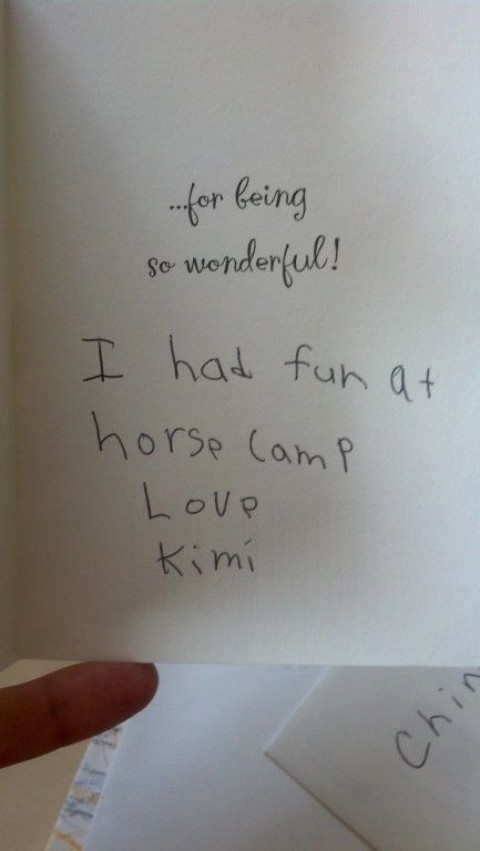 ...for being
so wonderful!
I had fun at
horse camp
Love
Kimi